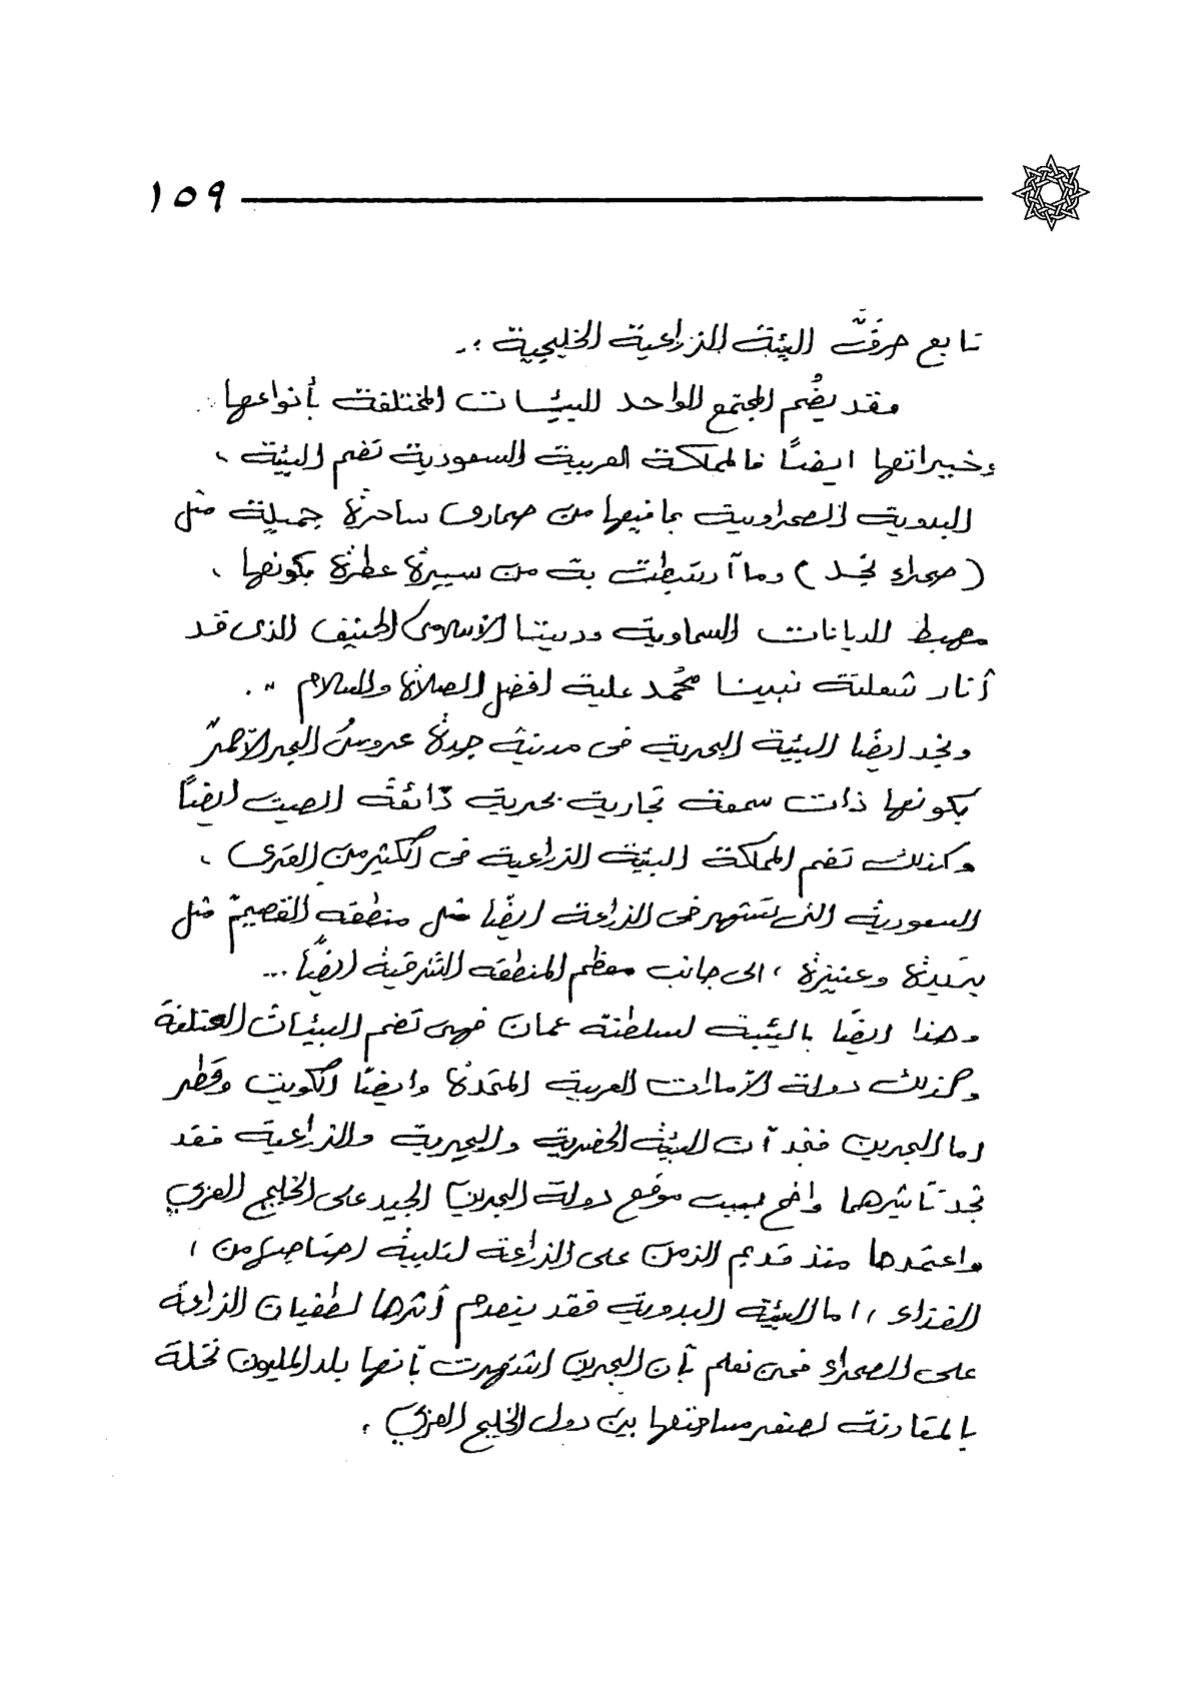 ١٥٩
تابع حرف البيئة الزراعية الخليجية :-
وقد يضُم المجتمع الواحد البيئات المختلفة بأنواعها
وخبراتها ايضاً فالمملكة العربية السعودية تضم البيئة ،
البدوية الصحراوية بما فيها من صحارى ساحرة جميلة مثل
(صحراء نجد) وما ارتبطت به من سيرة عطرة بكونها ،
مهبط الديانات السماوية وديننا الاسلامى الحنيف الذى قد
أنار شعلته نبينا محُمد علية افضل الصلاة والسلام .. .
ونجد ايضًا البيئة البحرية فى مدينة جدة عروسُ البحر الآحمر
بكونها ذات سمعة تجارية بحرية ذائعة الصيت ايضاً
وكذلك تضم المملكة البيئة الزراعية فى الكثير من القرى ،
السعودية التى تشتهر فى الزراعة ايضًا مثل منطقة القصيم مثل
بريدة وعنيزة ، الى جانب معظم المنطقة الشرقية ايضًا ...
وهذا ايضًا بالنسبة لسلطنة عمان فهى تضم البيئات المختلفة
وكذلك دولة الآمارات العربية المتحدة وايضًا الكويت وقطر
اما البحرين فنجد آن البيئة الحضرية والبحرية والزراعية فقد
نجد تآثيرهما واضح بسبب موقع دولة البحرين الجيد على الخليج العربي
واعتمدها منذ قديم الزمن على الزراعة لتلبية احتياجها من ،
الغذاء ،، اما البيئة البدوية فقد ينعدم أثرها لطغيان الزراعة
على الصحراء فنحن نعلم بآن البحرين اشتهرت بآنها بلد المليون نخلة
بالمقارنة لصغر مساحتها بين دول الخليج العربي .